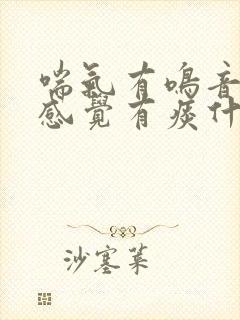 喘氣有鳴音
感覺有痰什
沙塞菜